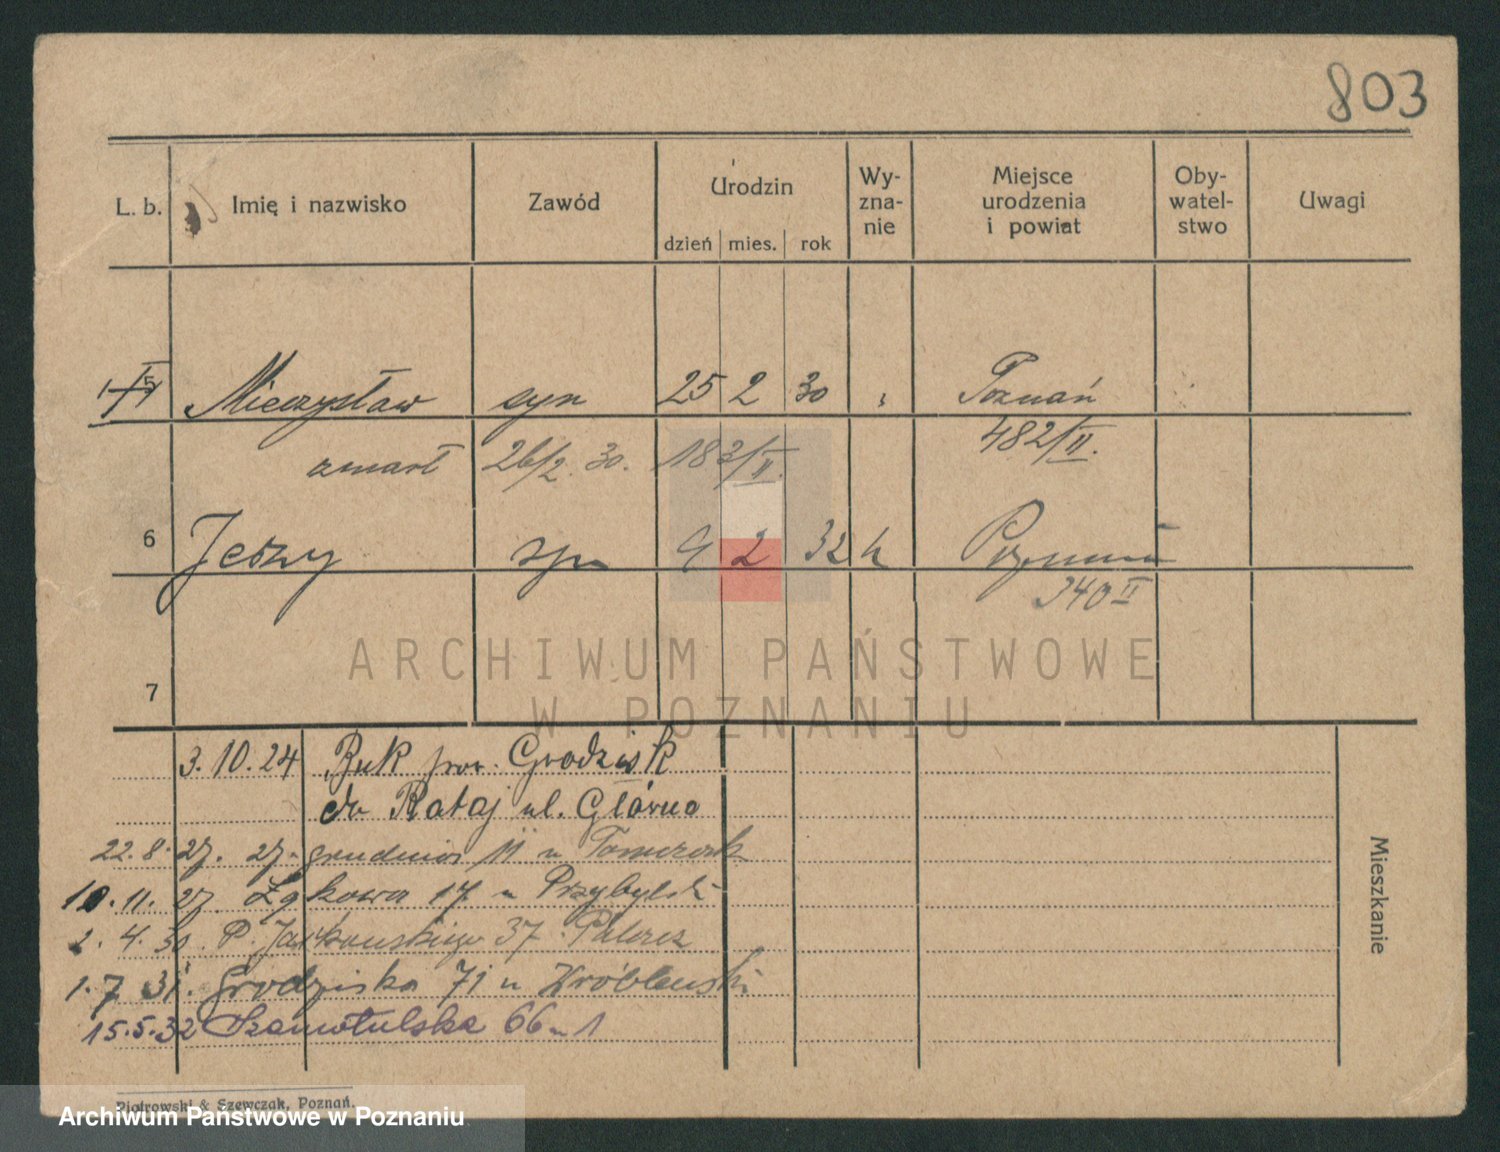 803
L. b. Imię i nazwisko Zawód Urodzin dzień mies. rok Wy-zna-nie Miejsce urodzenia i powiat Oby-watel-stwo Uwagi
5 Mieczysław syn 25 2 30 " Poznań
zmarł 26/2. 30. 183/II. 482/II.
6 Jerzy syn 9 2 32 k Poznań
340 II
ARCHIWUM PAŃSTWOWE
7
W POZNANIU
3.10.24 Buk pow. Grodzisk
do Rataj ul. Główna
22. 8. 27. 27 grudnia 11 u Tomczak
10. 11. 27. Łąkowa 17 u Przybylski
2. 4. 30. P. Jackowskiego 37
1. 7. 31. Grodziska 71 u Wróblewski
15.5.32 Szamotulska 66 m 1
Mieszkanie
Piotrowski & Szewczak, Poznań.
Archiwum Państwowe w Poznaniu